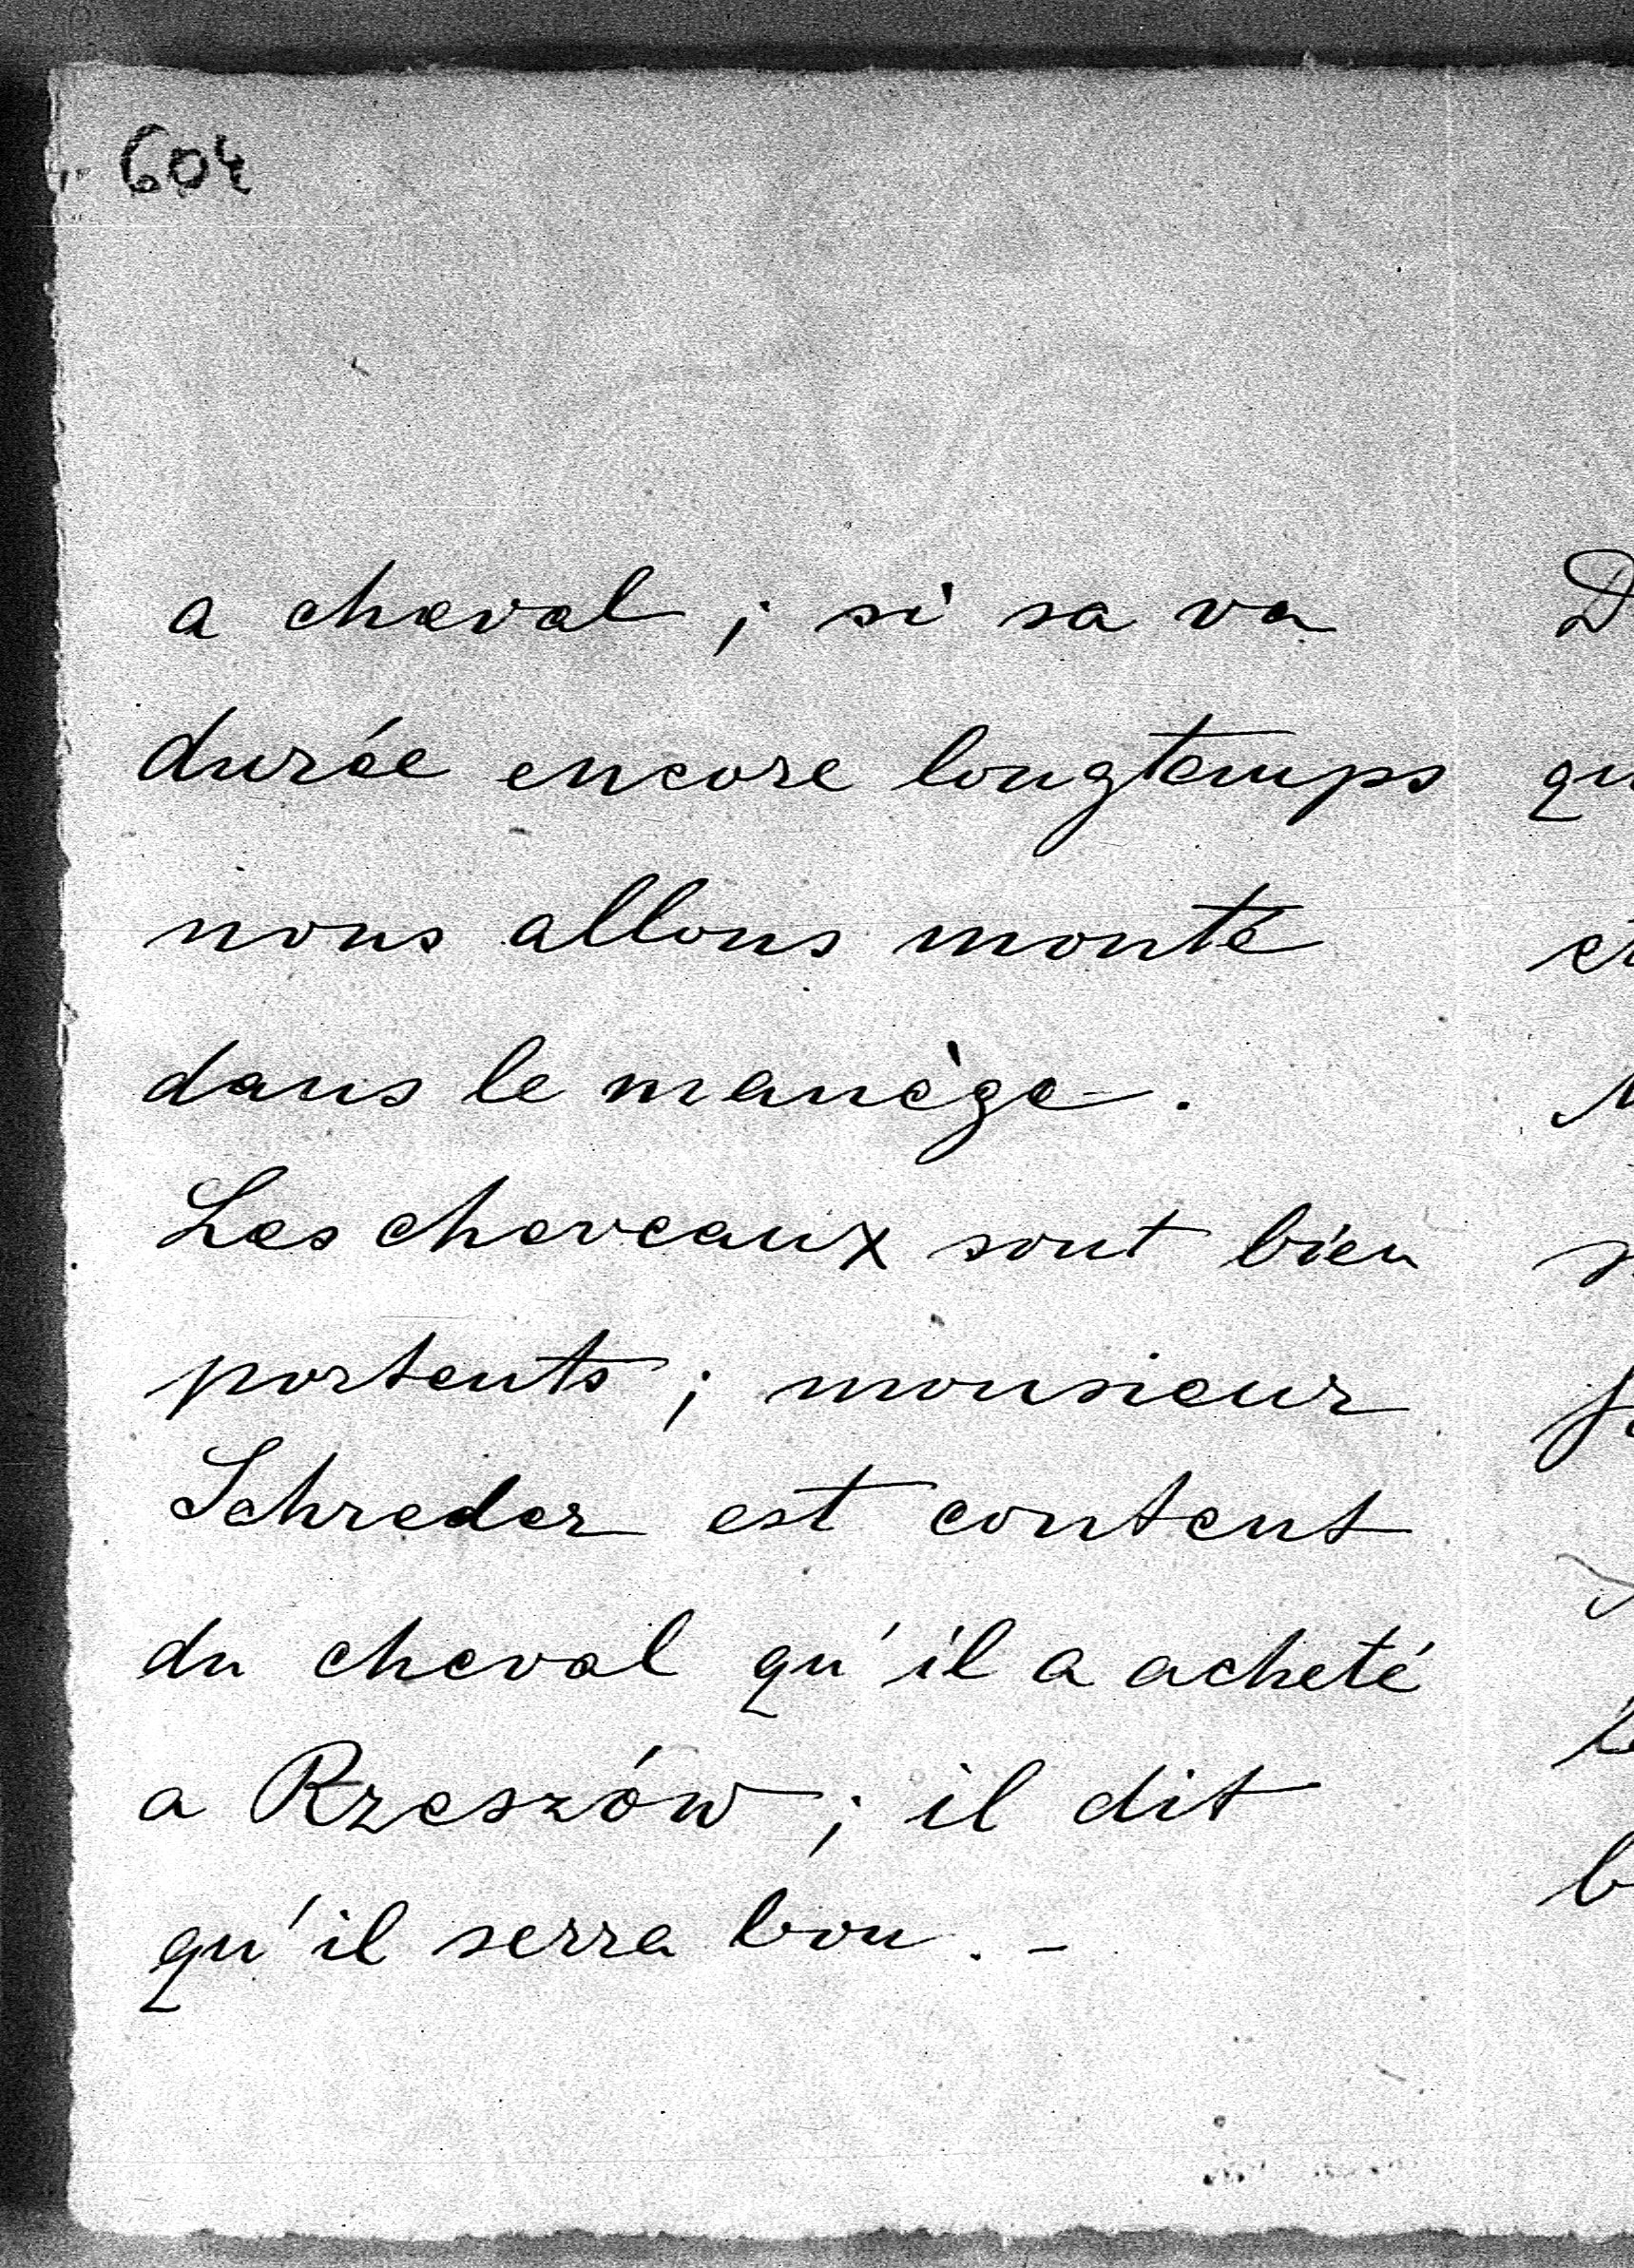 604
a cheval ; si sa va
durée encore longtemps
nous allons monté
dans le manège.
Les cheveaux sont bien
portents ; monsieur
Schreder est content
du cheval qu'il a acheté
a Rzeszów ; il dit
qu'il serra bon. -